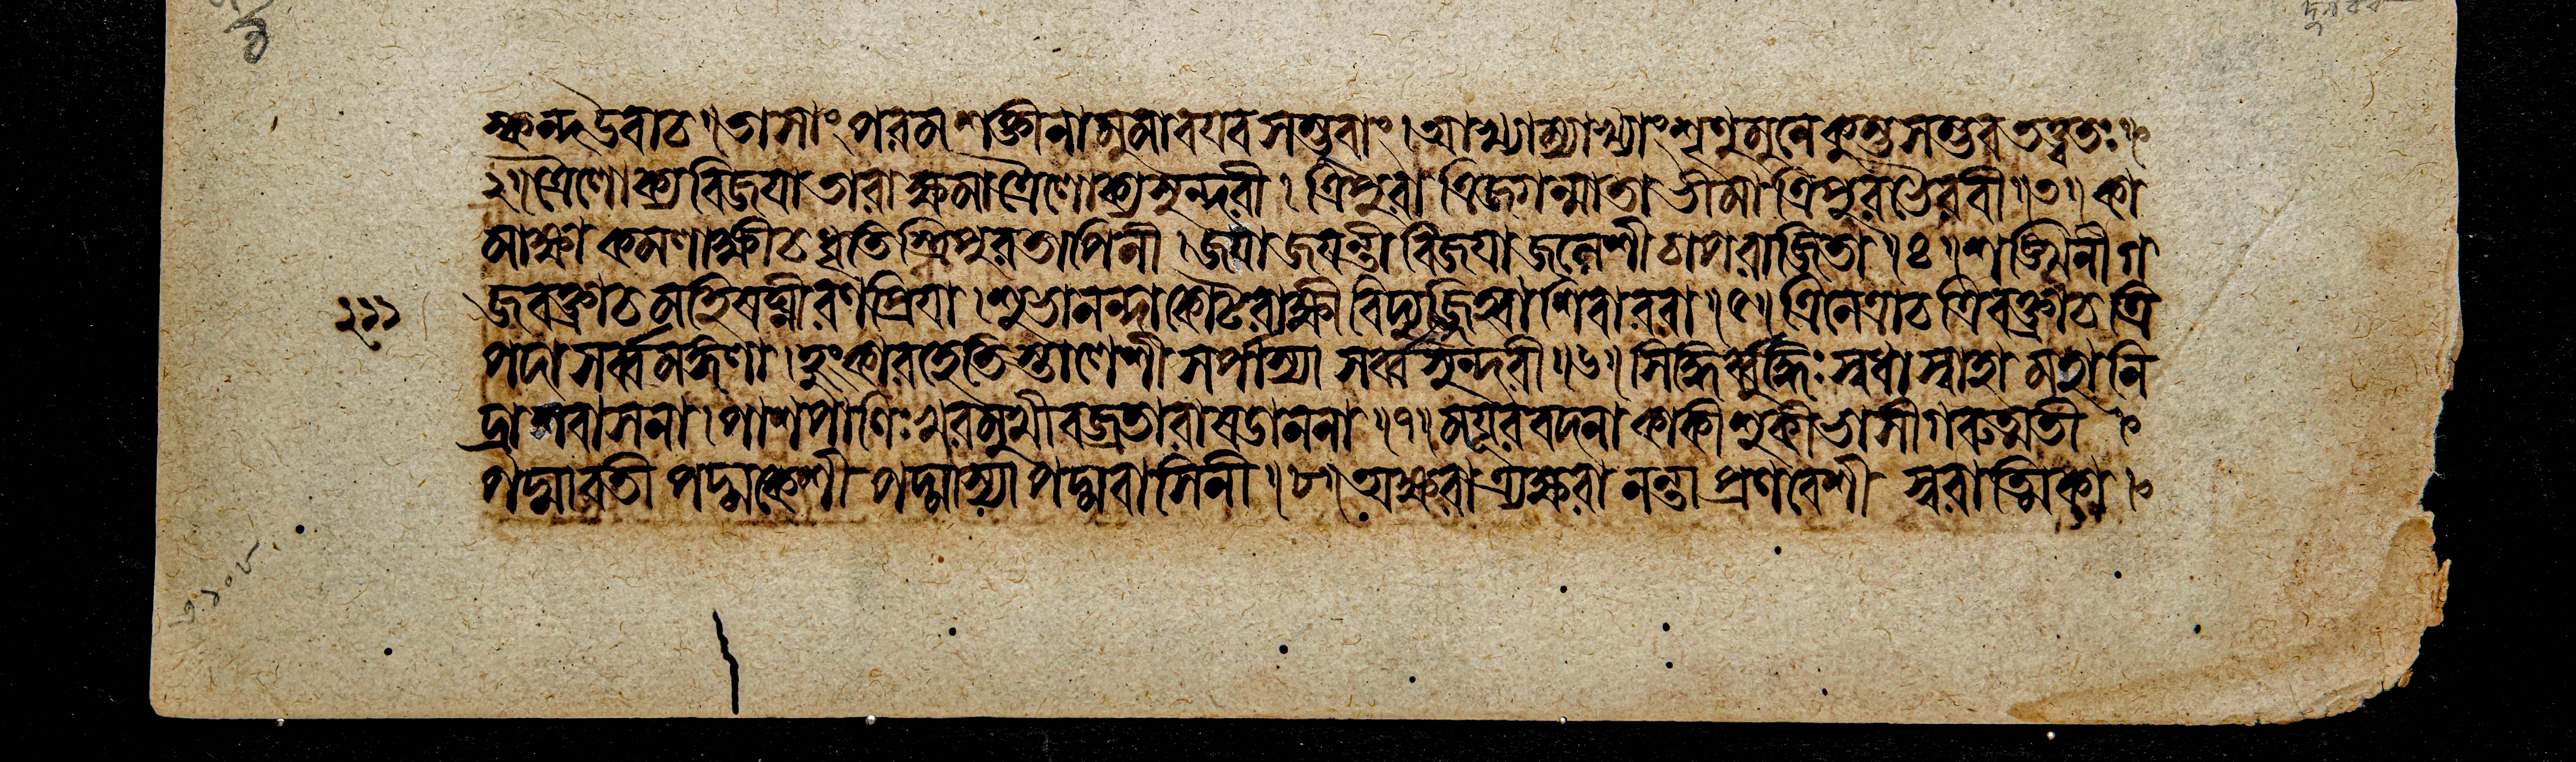 স্কন্দ উবাচ ॥ তাসাং পরমশক্তীনামুমাবয়বসম্ভুবাং । আখ্যাম্যাখ্যাং শৃণু মুনে কুম্ভসম্ভব তত্ত্বতঃ ॥
২॥ ত্রৈলোক্যবিজয়া তারা ক্ষমা ত্রৈলোক্যসুন্দরী । ত্রিপুরা ত্রিজগন্মাতা ভীমা ত্রিপুরভৈরবী ॥ ৩॥ কা
মাক্ষা কমলাক্ষী চ ধৃতিস্ত্রিপুরতাপিনী । জয়া জয়ন্তী বিজয়া জলেশী চাপরাজিতা ॥ ৪॥ শঙ্খিনী গ
২১১ জবক্ত্রা চ মহিষঘ্নী রণপ্রিয়া । শুভানন্দা কোটরাক্ষী বিদ্যুজ্জিহ্বা শিবারবা ॥ ৫॥ ত্রিনেত্রা চ ত্রিবক্ত্রা চ ত্রি
পদা সর্ব্বমঙ্গলা । হুংকারহেতিস্তালেশী সর্পাস্যা সর্ব্বসুন্দরী ॥ ৬॥ সিদ্ধির্ব্বুদ্ধিঃ স্বধা স্বাহা মহানি
দ্রা শবাসনা । পাশপাণিঃ খরমুখী বজ্রতারা ষডাননা ॥ ৭॥ ময়ূরবদনা কাকী শুকী ভাসী গরুত্মতী ।
পদ্মাবতী পদ্মকেশী পদ্মাস্যা পদ্মবাসিনী ॥ ৮॥ অক্ষরা ত্র্যক্ষরা প্রণবেশী স্বরাত্মিকা ।